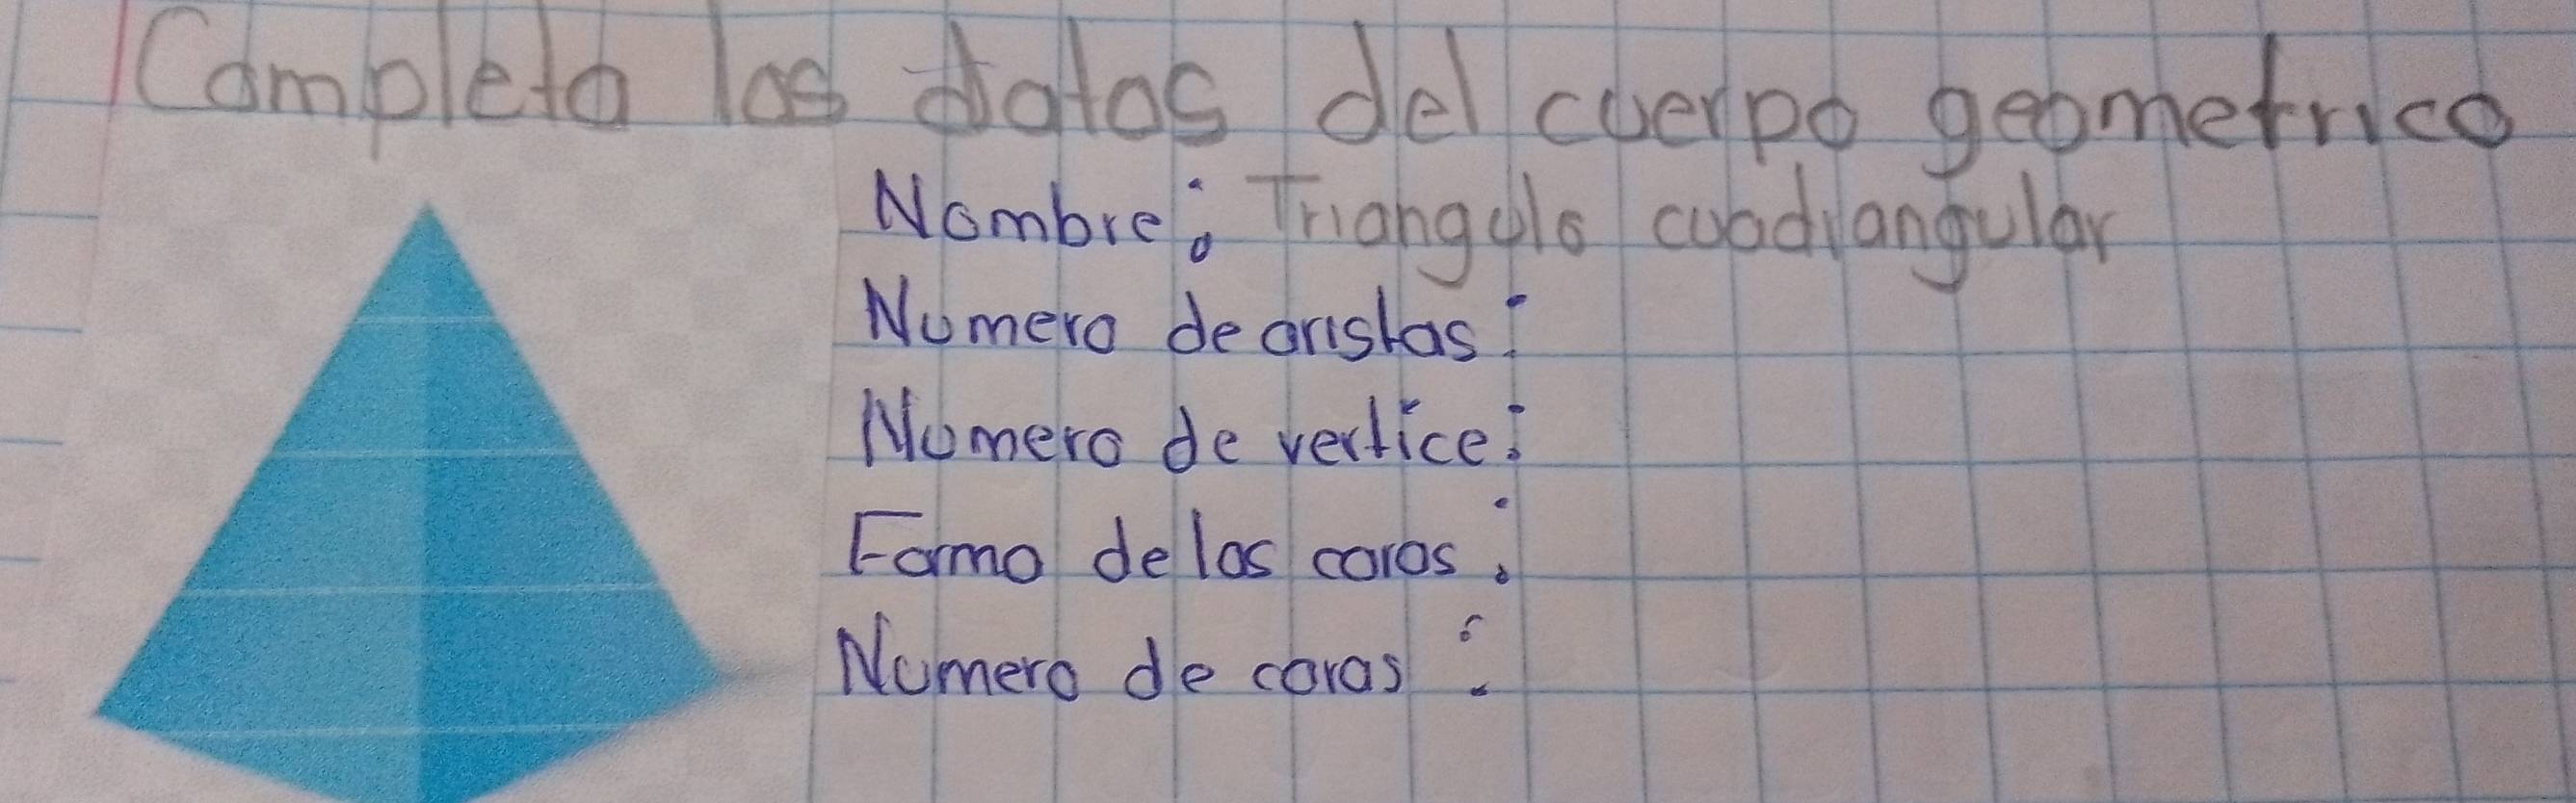 Completa los datos del cuerpo geometrico
Nombre: Triangulo cuadrangular
Numero de aristas:
Numero de vertice:
Forma de las caras:
Numero de caras: